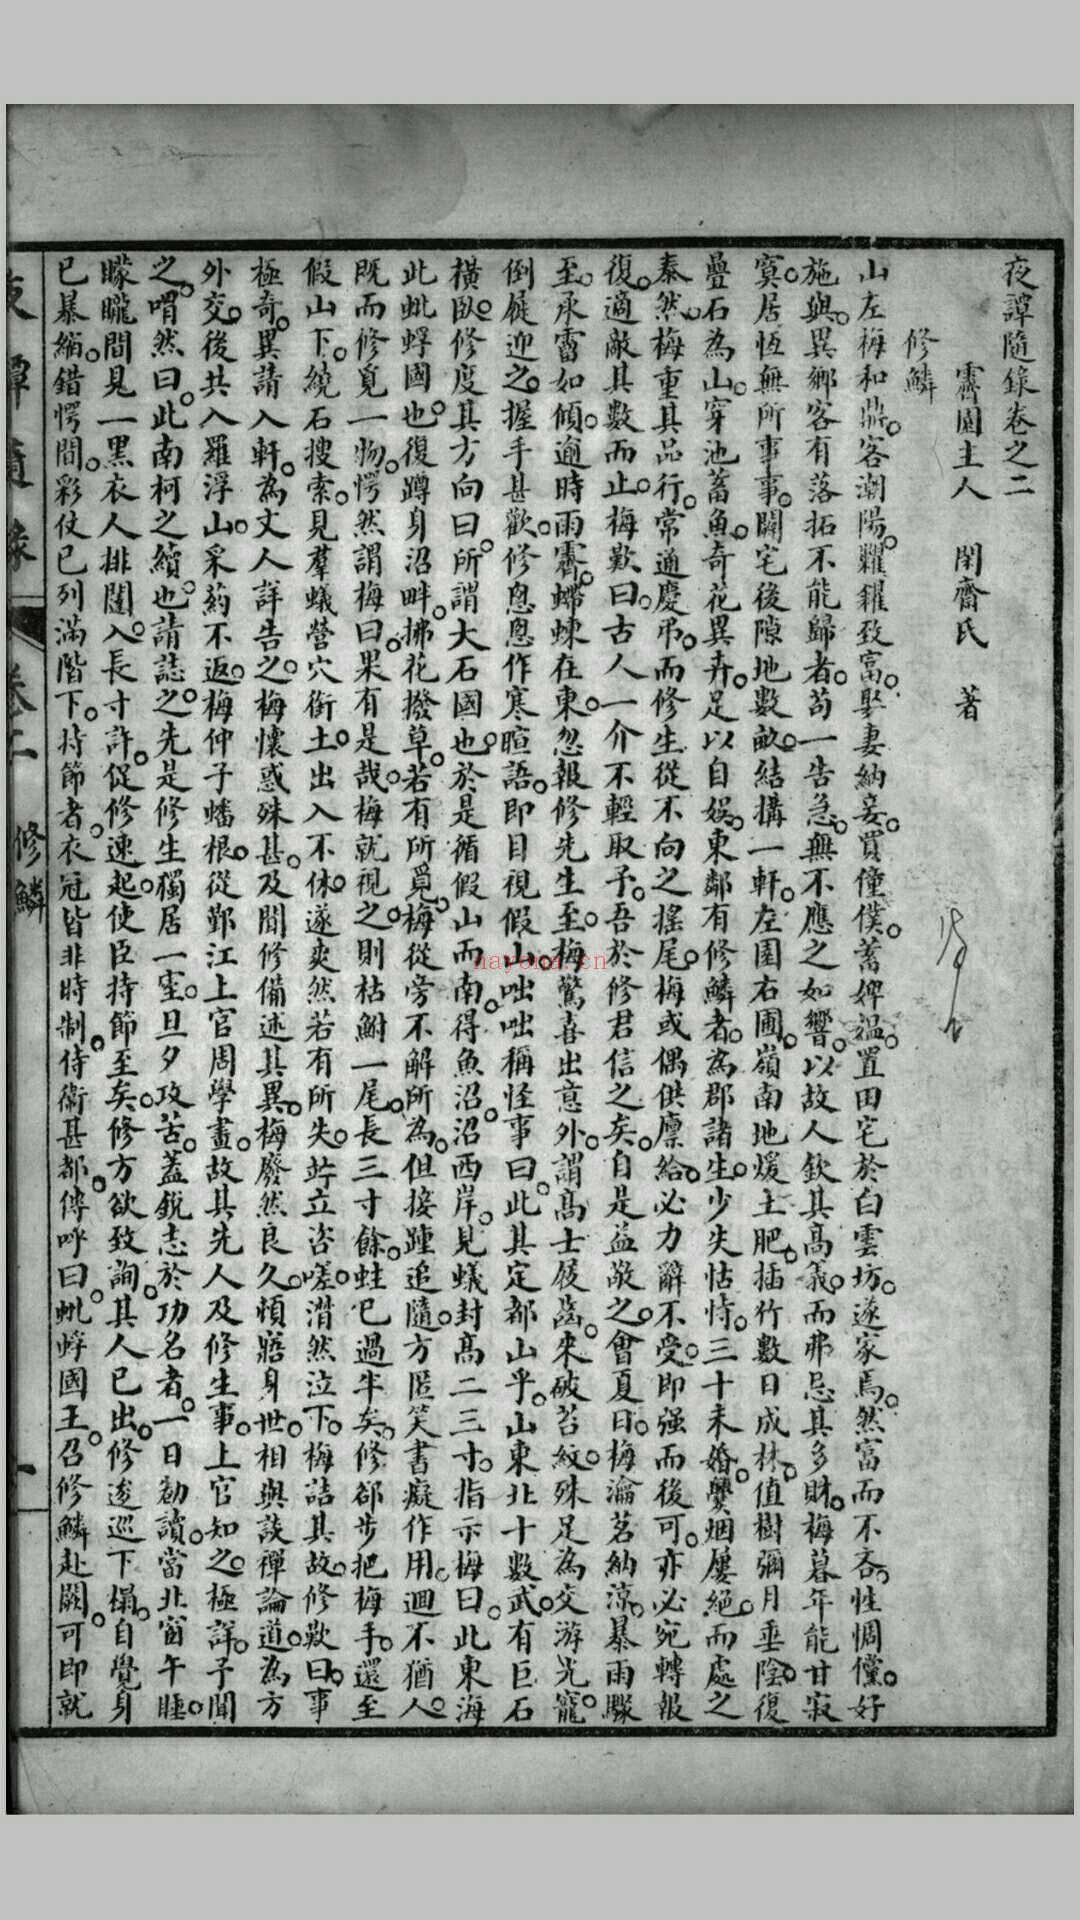 夜譚隨錄卷之二
霽園主人　閑齋氏　著
修鱗
山左梅和鼎。客潮陽。糶糴致富。娶妻納妾。買僮僕。蓄婢媼。置田宅於白雲坊。遂家焉。然富而不吝。性倜儻。好
施與。異鄉客有落拓不能歸者。苟一告急。無不應之如響。以故人欽其高義。而弗忌其多財。梅暮年能甘寂
寞。居恆無所事事。闢宅後隙地數畝。結構一軒。左園右圃。嶺南地煖土肥。插竹數日成林。值樹彌月垂陰。復
疊石為山。穿池蓄魚。奇花異卉。足以自娛。東鄰有修鱗者。為郡諸生。少失怙恃。三十未婚。爨烟屢絕。而處之
泰然。梅重其品行。常通慶弔。而修生從不向之搖尾。梅或偶供廪給。必力辭不受。即强而後可。亦必宛轉報
復。適敵其數而止。梅歎曰。古人一介不輕取予。吾於修君信之矣。自是益敬之。會夏日。梅瀹茗納涼。暴雨驟
至。承霤如傾。逾時雨霽。螮蝀在東。忽報修先生至。梅驚喜出意外。謂高士屐齒。來破苔紋。殊足為交游光寵。
倒屣迎之。握手甚歡。修怱怱作寒暄語。即目視假山。咄咄稱怪事曰。此其定都山乎。山東北十數武。有巨石
橫臥。修度其方向曰。所謂大石國也。於是循假山而南。得魚沼。沼西岸。見蟻封高二三寸。指示梅曰。此東海
此蚍蜉國也。復蹲身沼畔。拂花撥草。若有所覓。梅從旁不解所為。但接踵追隨。方匿笑書癡作用。迴不猶人。
既而修覓一物。愕然謂梅曰。果有是哉。梅就視之。則枯鮒一尾。長三寸餘。蛀已過半矣。修郤步把梅手。還至
假山下。繞石搜索。見羣蟻營穴銜土。出入不休。遂爽然若有所失。竚立咨嗟。潸然泣下。梅詰其故。修歎曰。事
極奇。異請入軒。為丈人詳告之。梅懷惑殊甚。及聞修備述其異。梅廢然良久。頓寤身世。相與談禪論道。為方
外交。後共入羅浮山。采药不返。梅仲子蟠根。從鄞江上官周學畫。故其先人及修生事。上官知之極詳。予聞
之。喟然曰。此南柯之續也。請誌之。先是修生獨居一室。旦夕攻苦。蓋銳志於功名者。一日勌讀。當北窗午睡。
矇矓間見一黑衣人排闥入。長寸許。促修速起。使臣持節至矣。修方欲致詢。其人已出。修逡巡下榻。自覺身
已暴縮。錯愕間。彩仗已列滿階下。持節者。衣冠皆非時制。侍衛甚都。傳呼曰。蚍蜉國王。召修鱗赴闕。可即就
夜譚隨錄　卷二　修鱗　一
nayona.cn